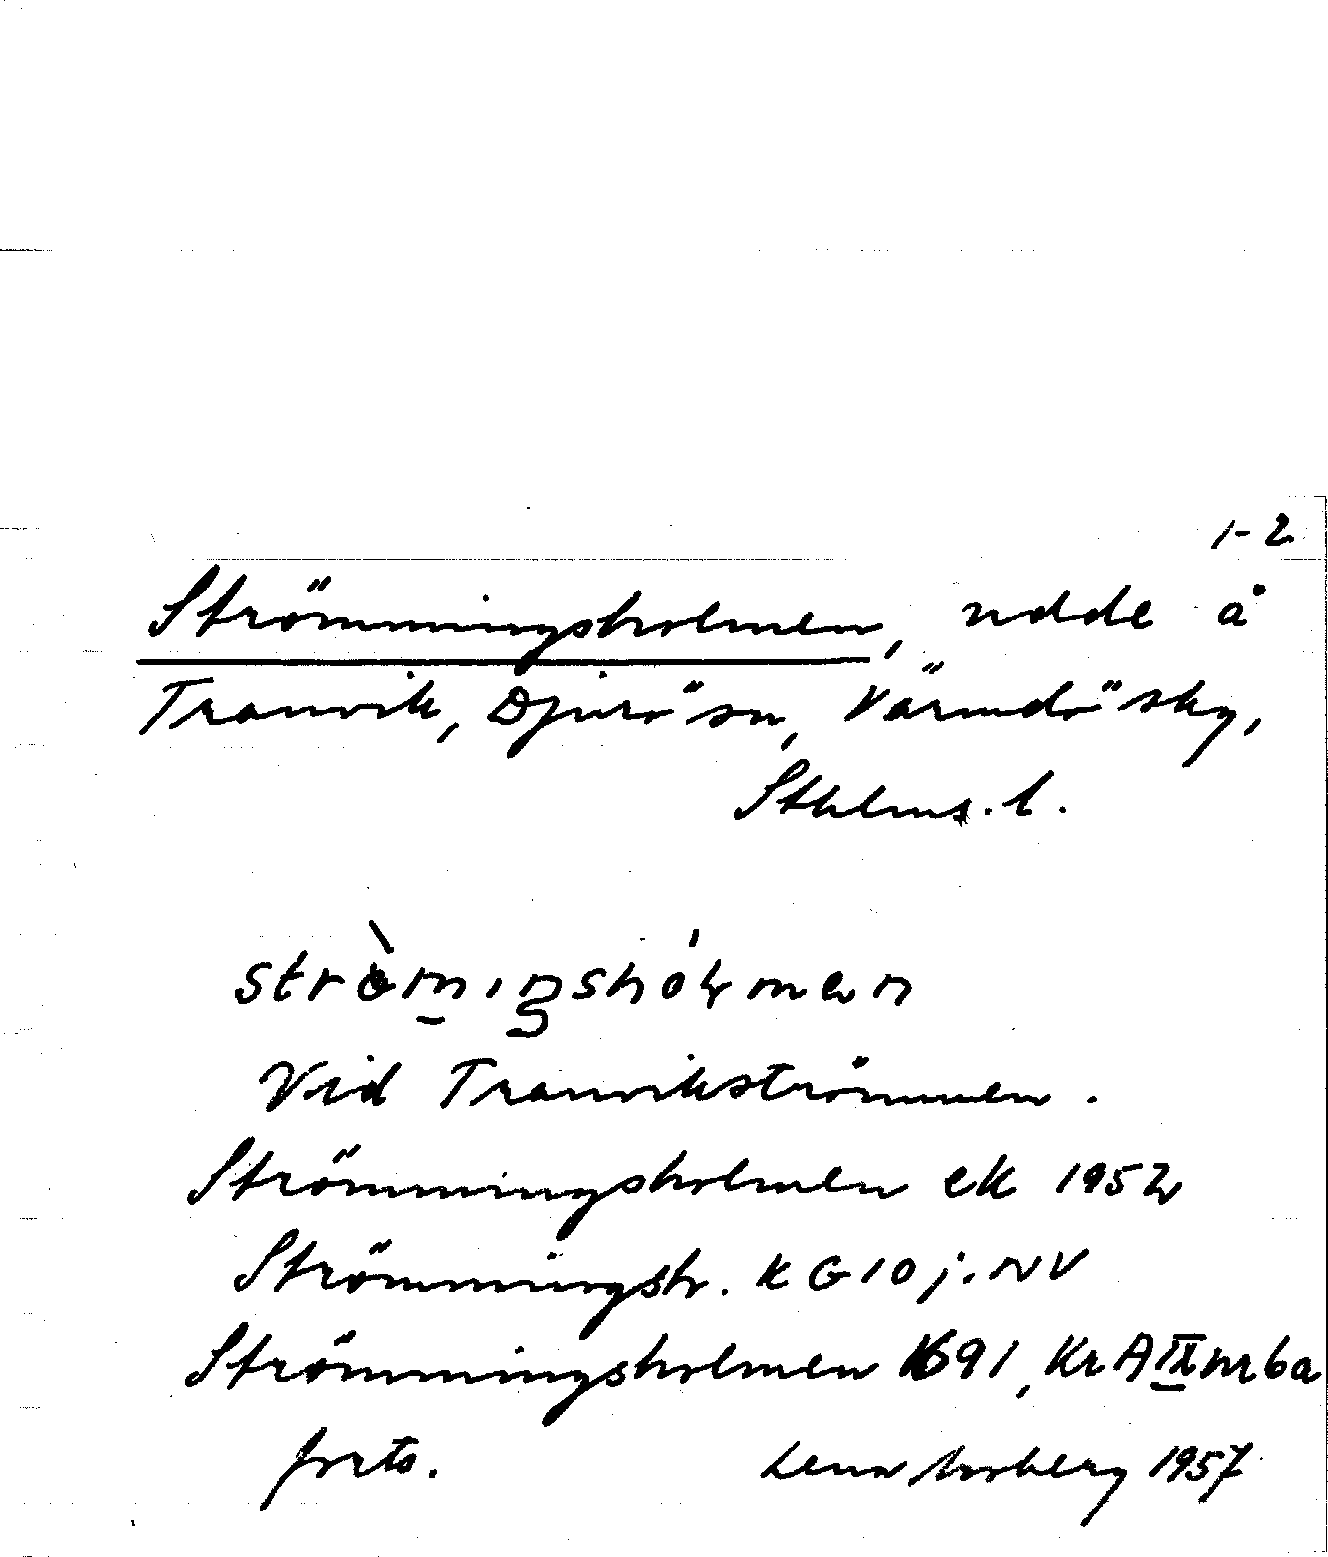 1-2
Strömmingsholmen, udde å
Tranvik, Djurö sn, Värmdö sky,
Sthlms. l.
Vid Tranvikströmmen.
Strömmingsholmen ek 1952
Strömmingsh. k G 10 j. NV
Strömmingsholmen 1691, Kr A nr 6a
forts. Lena Moberg 1957